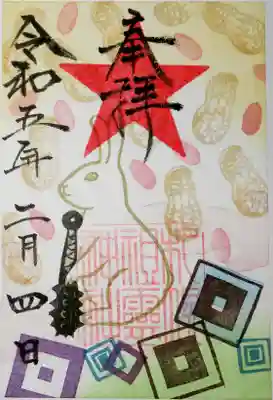 奉拝
令和五年二月四日